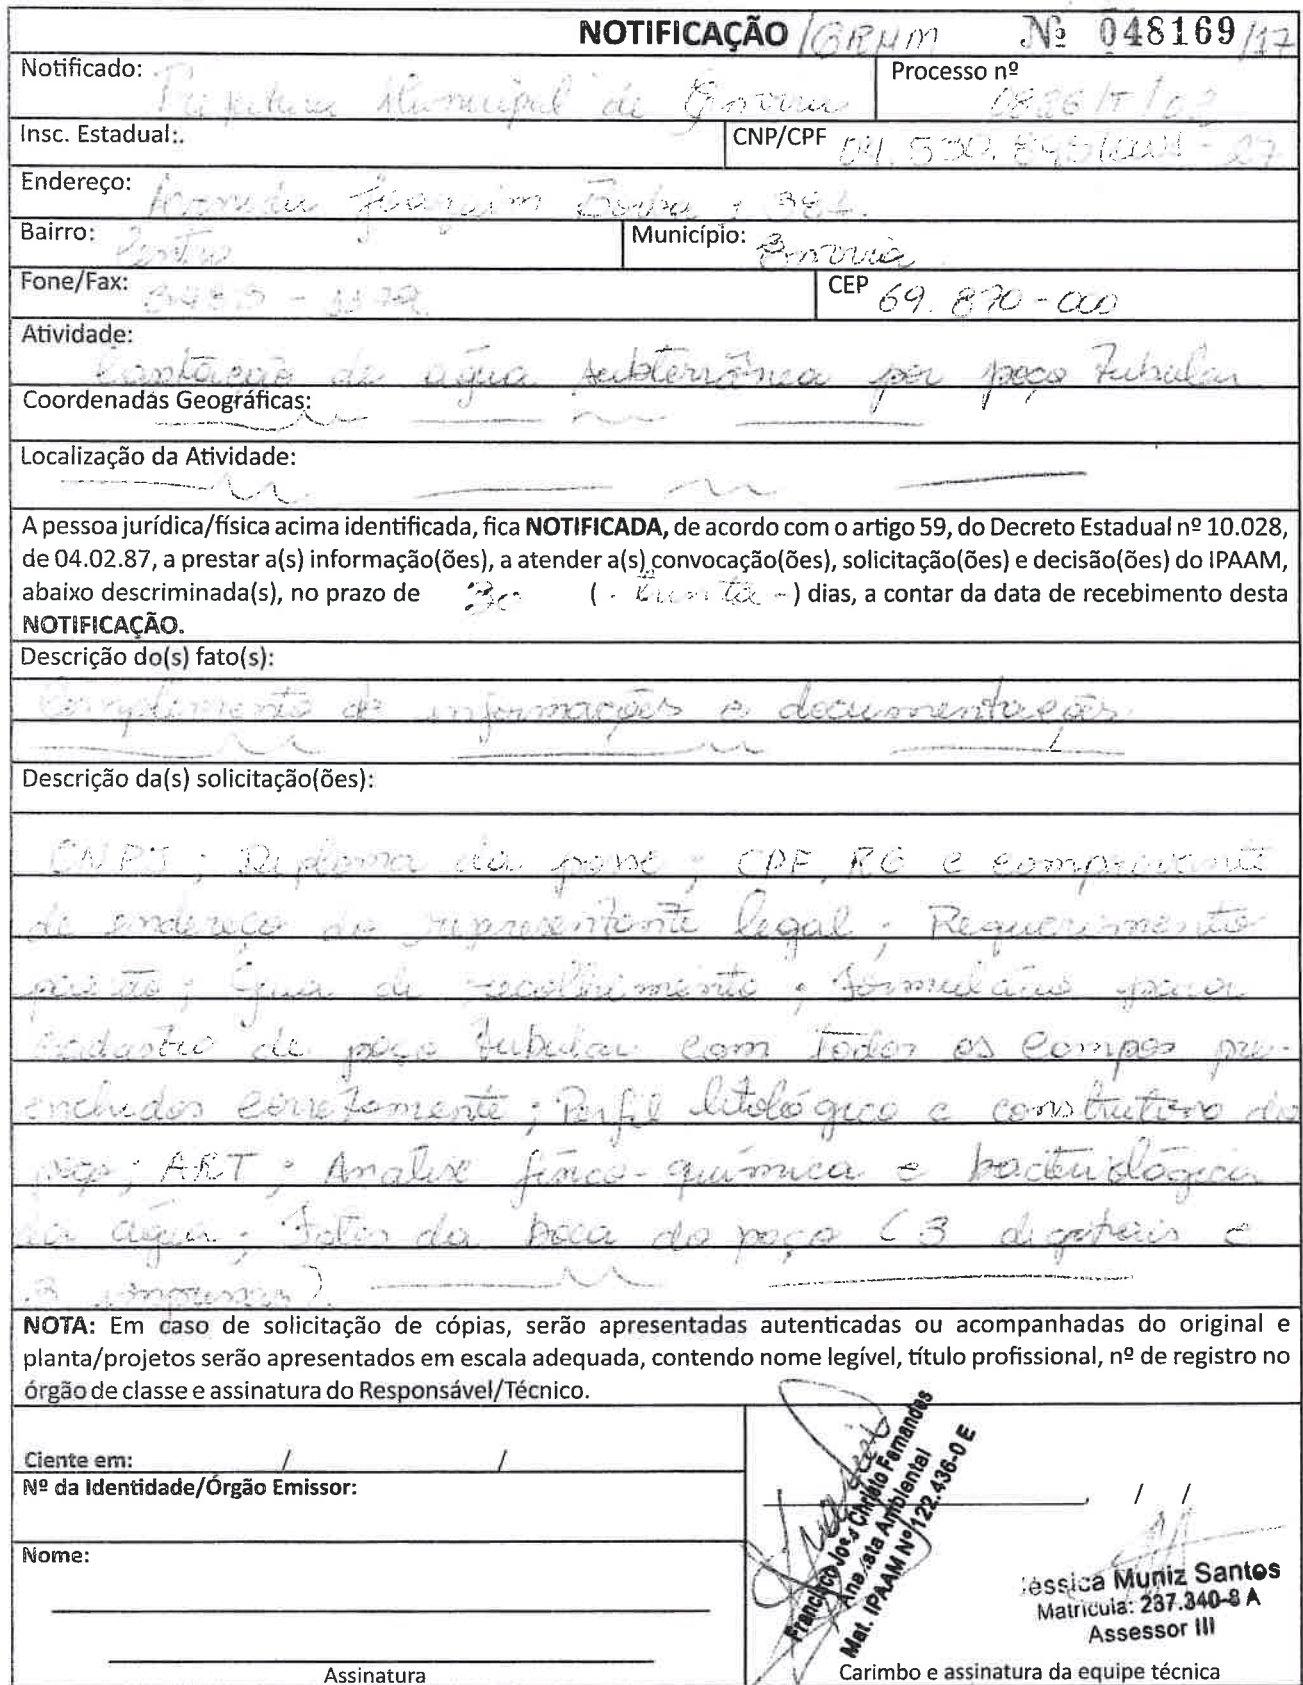 NOTIFICAÇÃO /GRHM Nº 048169/17
Notificado: Prefeitura Municipal de Envira
Processo nº 0826/T/03
Insc. Estadual:.
CNP/CPF 04. 530. 895/0001-27
Endereço: Joaquim Borba,
Bairro: Centro
Município: Envira
Fone/Fax:
CEP 69. 870-000
Atividade:
Captação de água subterrânea por poço tubular
Coordenadas Geográficas:
Localização da Atividade:
A pessoa jurídica/física acima identificada, fica NOTIFICADA, de acordo com o artigo 59, do Decreto Estadual nº 10.028,
de 04.02.87, a prestar a(s) informação(ões), a atender a(s) convocação(ões), solicitação(ões) e decisão(ões) do IPAAM,
abaixo descriminada(s), no prazo de 30 (- trinta -) dias, a contar da data de recebimento desta
NOTIFICAÇÃO.
Descrição do(s) fato(s):
Complemento de informações e documentações
Descrição da(s) solicitação(ões):
CNPJ; Diploma da posse; CPF, RG e comprovante
de endereço do representante legal; Requerimento
padrão; Guia de recolhimento; Formulário para
cadastro de poço tubular com todos os campos pre-
enchidos corretamente; Perfil litológico e construtivo do
poço; ART; Analise físico-química e bacteriológica
da água; Fotos da boca do poço (3 digitais e
3 impressas).
NOTA: Em caso de solicitação de cópias, serão apresentadas autenticadas ou acompanhadas do original e
planta/projetos serão apresentados em escala adequada, contendo nome legível, título profissional, nº de registro no
órgão de classe e assinatura do Responsável/Técnico.
Ciente em: / /
Nº da Identidade/Órgão Emissor:
Nome:
Assinatura
Francisco José Christo Fernandes
Analista Ambiental
Mat. IPAAM Nº 122.436-0 E
, / /
Jéssica Muniz Santos
Matrícula: 237.340-8 A
Assessor III
Carimbo e assinatura da equipe técnica